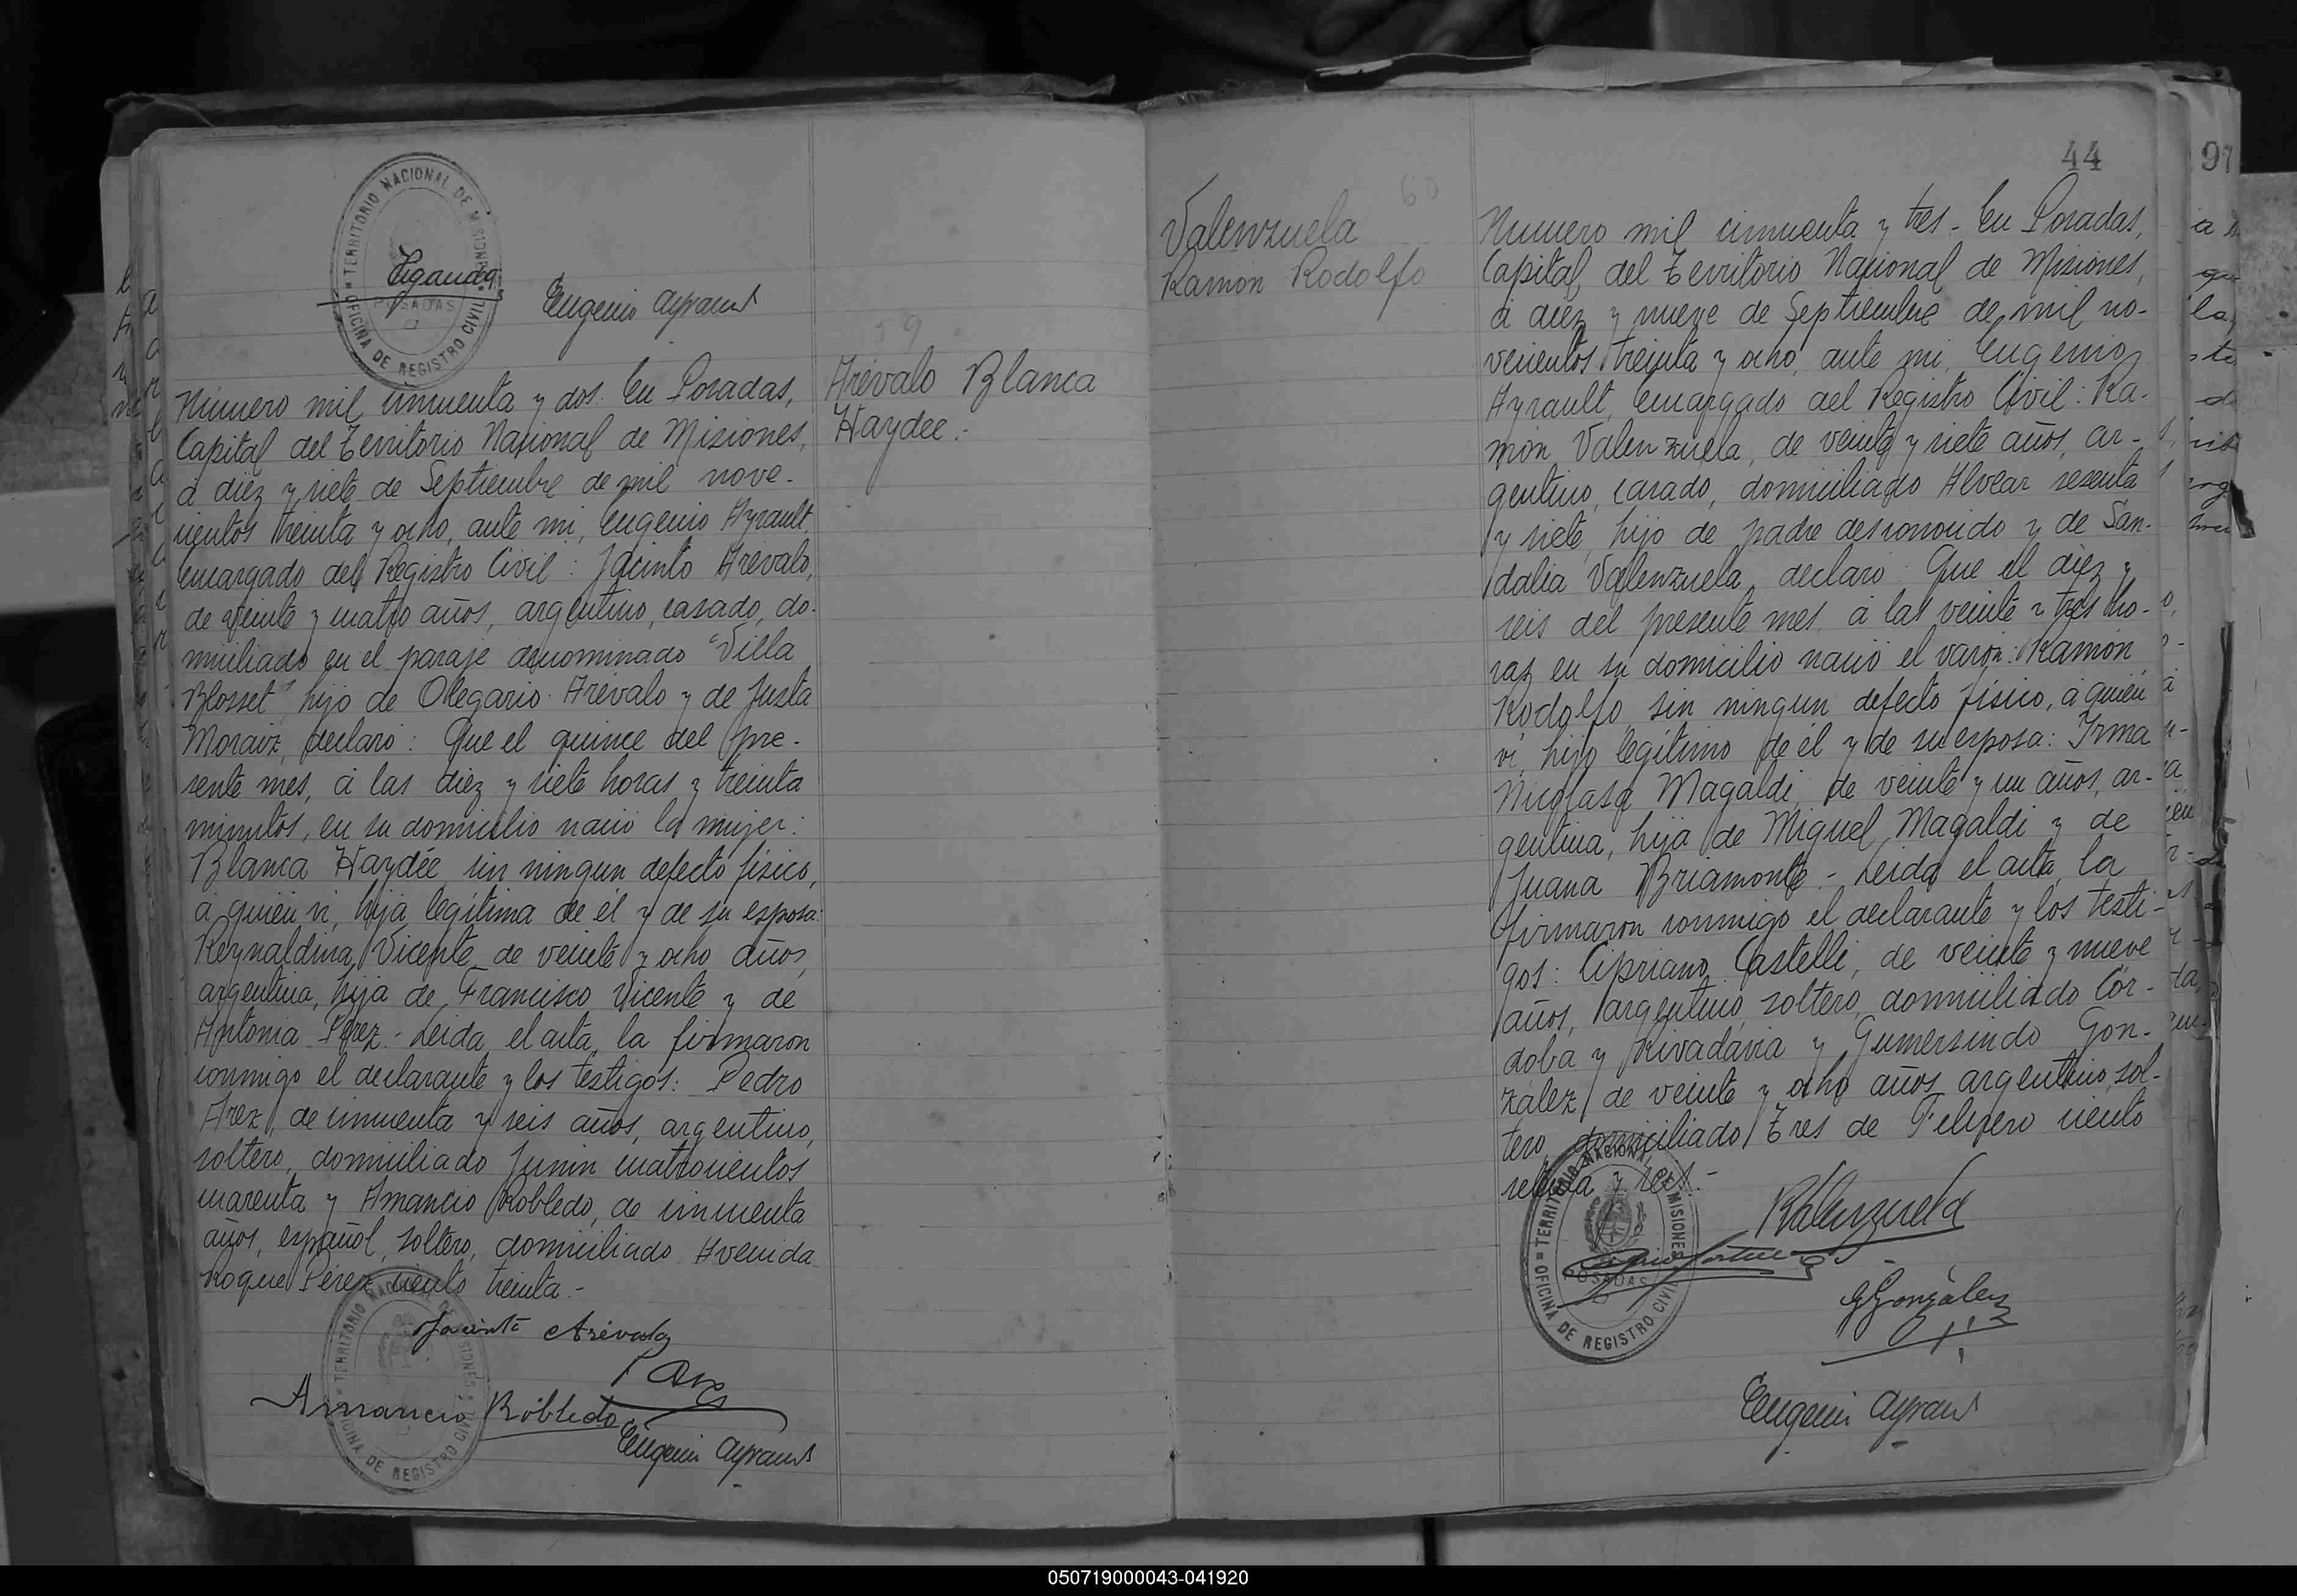 TERRITORIO NACIONAL DE MISIONES
OFICINA DE REGISTRO CIVIL
POSADAS
Eugenio Ayrault
59
Número mil cincuenta y dos. En Posadas,
Capital del Territorio Nacional de Misiones,
á diez y siete de Septiembre de mil nove-
cientos treinta y ocho, ante mi, Eugenio Ayrault
Encargado del Registro Civil: Jacinto Arévalo,
de veinte y cuatro años, argentino, casado, do-
miciliado en el paraje denominado "Villa
Blosset", hijo de Olegario Arévalo y de Justa
Moraiz, declaró: Que el quince del pre-
sente mes, á las diez y siete horas y treinta
minutos, en su domicilio nació la mujer:
Blanca Haydée sin ningun defecto físico,
á quién vi, hija legítima de él y de su esposa:
Reynaldina Vicente de veinte y ocho años,
argentina, hija de Francisco Vicente y de
Antonia Pérez - Leida el acta, la firmaron
conmigo el declarante y los testigos: Pedro
Arez, de cincuenta y seis años, argentino,
soltero, domiciliado Junin cuatrocientos
cuarenta y Amancio Robledo, de cincuenta
años, español, soltero, domiciliado Avenida
Roque Pérez ciento treinta.-
Jacinto Arévalo
P Arez
Amancio Robledo
Eugenio Ayrault
TERRITORIO NACIONAL DE MISIONES
OFICINA DE REGISTRO CIVIL
Arévalo Blanca
Haydee.-
60
Valenzuela
Ramón Rodolfo
44
97
Numero mil cincuenta y tres - En Posadas,
Capital del Territorio Nacional de Misiones,
á diez y nueve de Septiembre de mil no-
vecientos treinta y ocho, ante mi, Eugenio
Ayrault, Encargado del Registro Civil: Ra-
món Valenzuela, de veinte y siete años, ar-
gentino, casado, domiciliado Alvear sesenta
y siete, hijo de padre desconocido y de San-
dalia Valenzuela, declaró: Que el diez y
seis del presente mes á las veinte y tres ho-
ras en su domicilio nació el varón: Ramón
Rodolfo, sin ningun defecto físico, á quién
vi, hijo legítimo de él y de su esposa: Irma
Nicolasa Magaldi, de veinte y un años, ar-
gentina, hija de Miguel Magaldi y de
Juana Briamonte - Leida el acta, la
firmaron conmigo el declarante y los testi-
gos: Cipriano Castelli, de veinte y nueve
años, argentino, soltero, domiciliado Cór-
doba y Rivadavia y Gumersindo Gon-
zález, de veinte y ocho años, argentino, sol-
tero, domiciliado Tres de Febrero ciento
setenta y seis.-
RValenzuela
GGonzález
Eugenio Ayrault
TERRITORIO NACIONAL DE MISIONES
OFICINA DE REGISTRO CIVIL
POSADAS
050719000043-041920